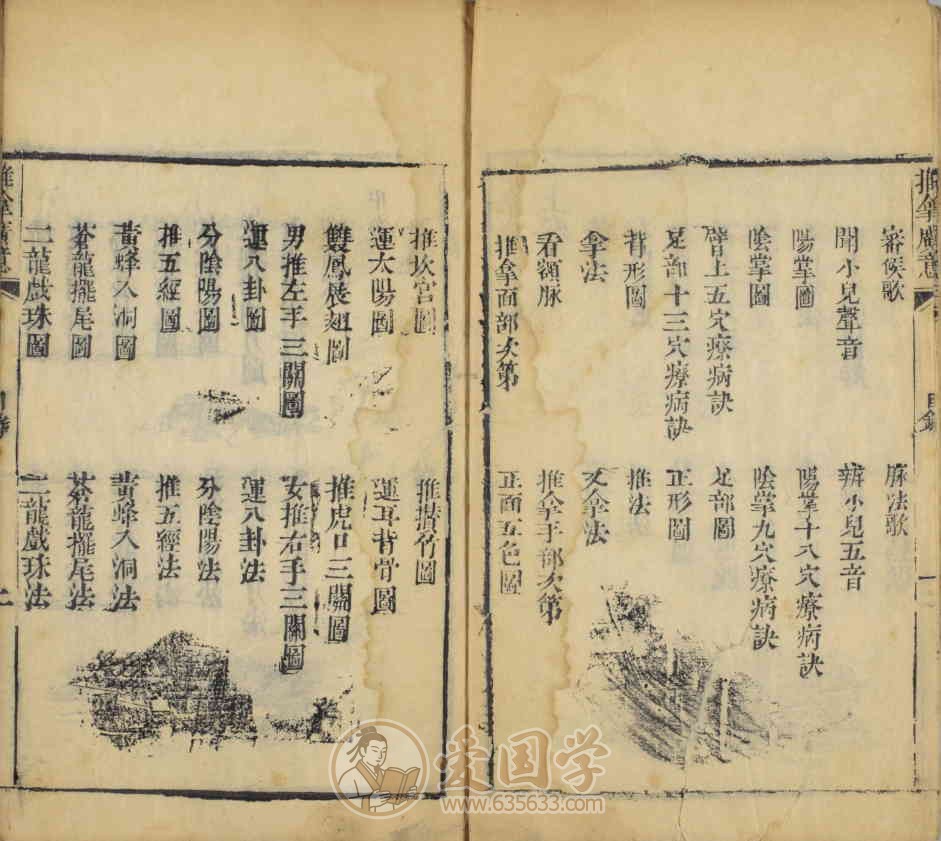 推拿廣意
目錄
一
審候歌
脉法歌
聞小兒聲音
辨小兒五音
陽掌圖
陽掌十八穴療病訣
陰掌圖
陰掌九穴療病訣
臂上五穴療病訣
足部圖
足部十三穴療病訣
正形圖
背形圖
推法
拿法
又拿法
看額脉
推拿手部次第
推拿面部次第
正面五色圖
推坎宮圖
推攢竹圖
運太陽圖
運耳背骨圖
雙鳳展翅圖
推虎口三關圖
男推左手三關圖
女推右手三關圖
運八卦圖
運八卦法
分陰陽圖
分陰陽法
推五經圖
推五經法
黃蜂入洞圖
黃蜂入洞法
蒼龍擺尾圖
蒼龍擺尾法
二龍戲珠圖
二龍戲珠法
推拿廣意
爱国学
www.635633.com